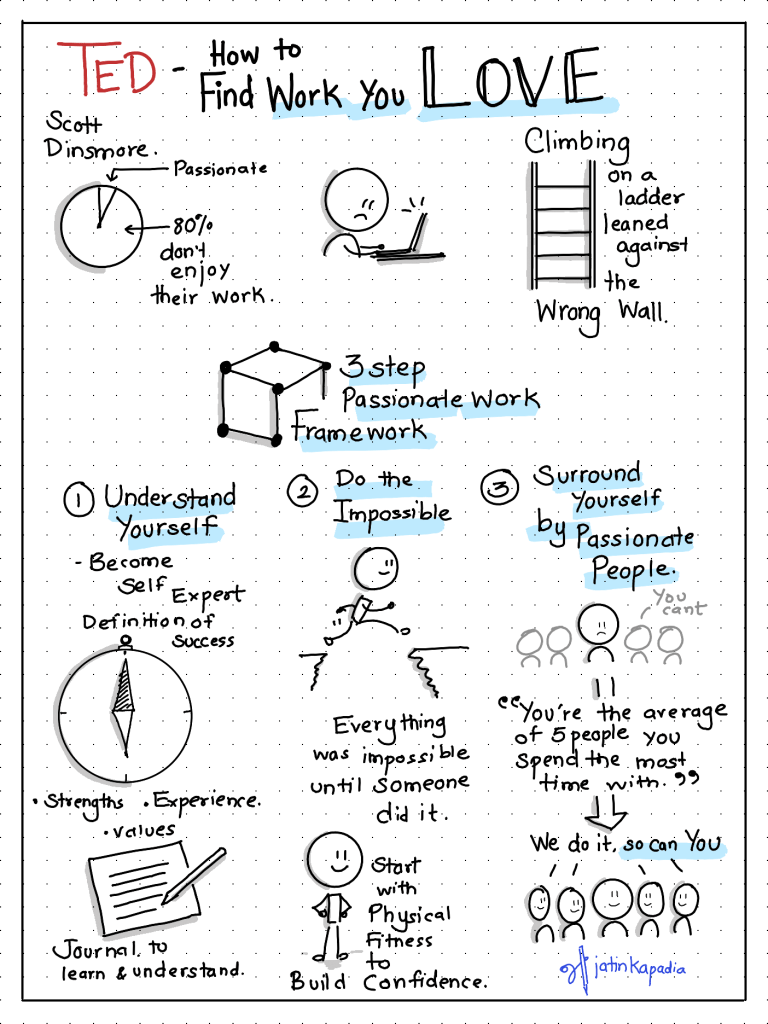 TED - How to
Find Work You LOVE
Scott
Dinsmore.
Passionate
80%
don't
enjoy
their work.
Climbing
on a
ladder
leaned
against
the
Wrong Wall.
3 step
Passionate Work
Framework
1 Understand
Yourself
- Become
Self Expert
Definition of
Success
• Strengths • Experience.
• values
Journal, to
learn & understand.
2 Do the
Impossible
Everything
was impossible
until someone
did it.
Start
with
Physical
Fitness
to
Build Confidence.
3. Surround
Yourself
by Passionate
People.
You
cant
"You're the average
of 5 people you
spend the most
time with."
We do it, so can You
jatinkapadia